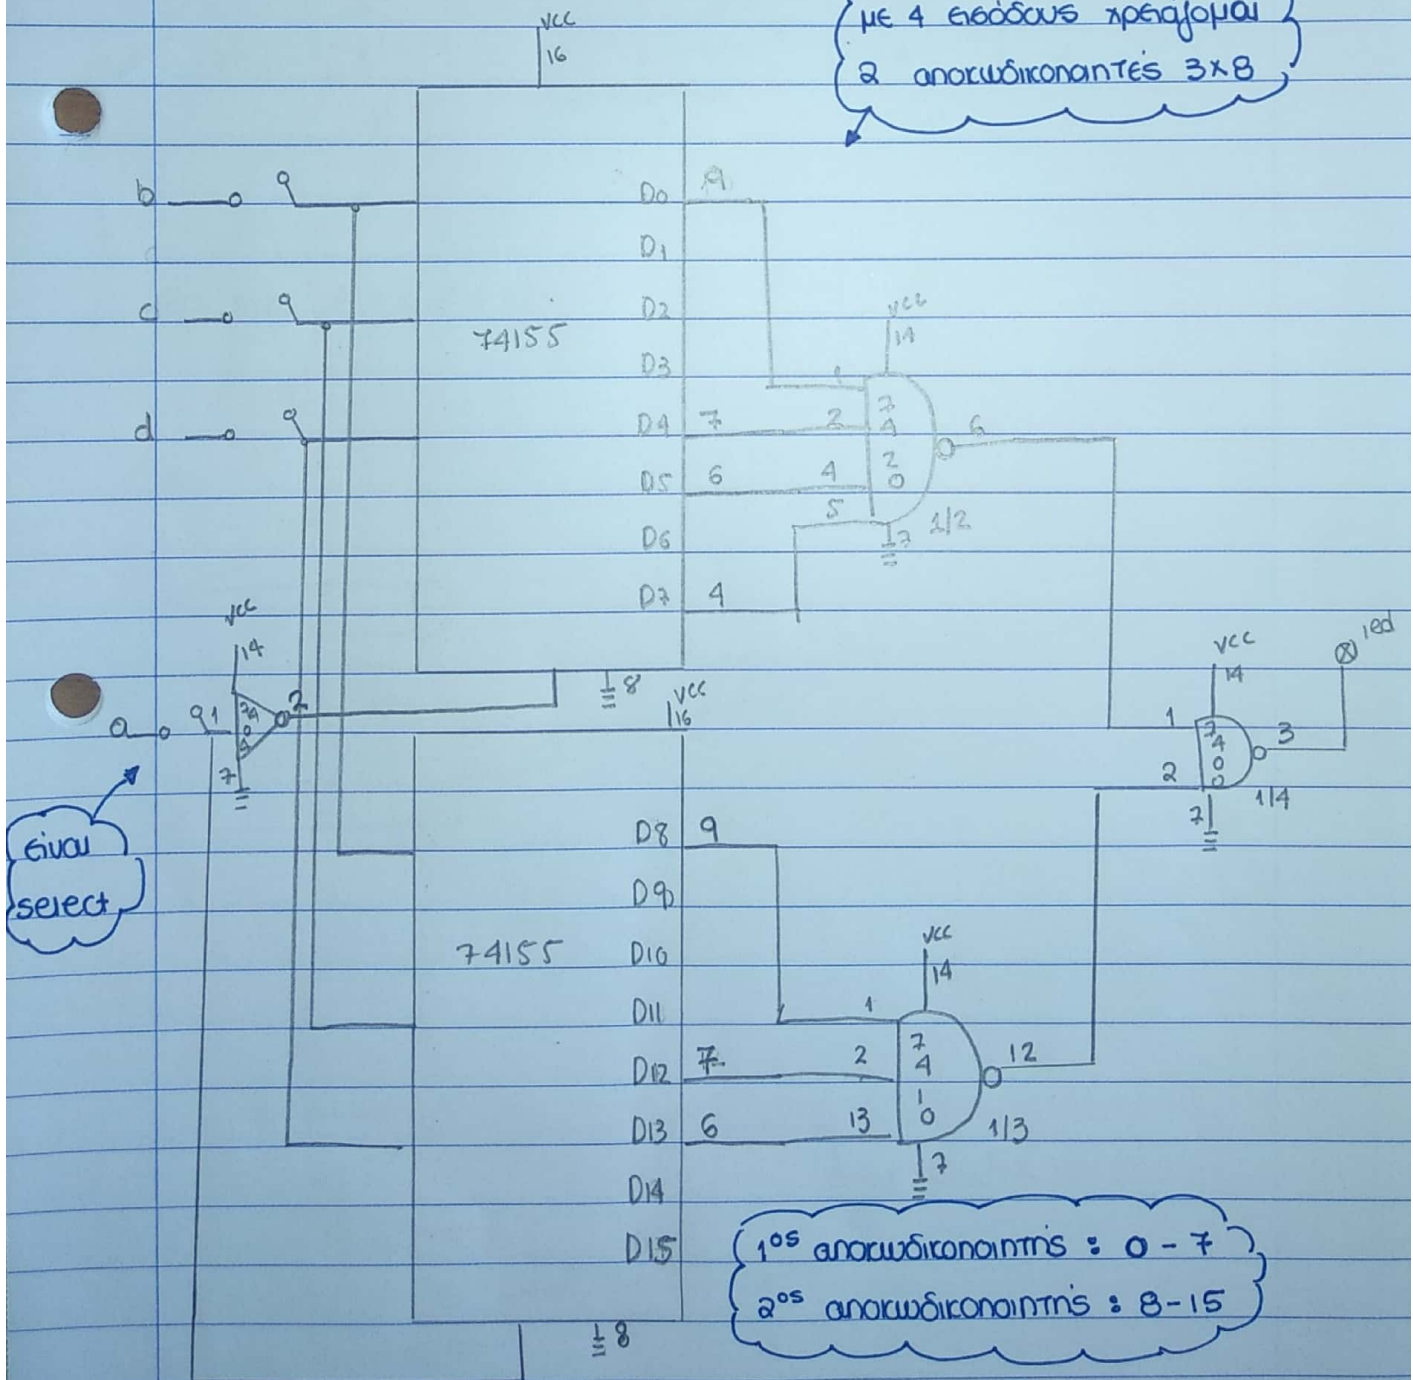 με 4 εισόδους χρειάζομαι
2 αποκωδικοποιητές 3x8
VCC
16
b
c
d
74155
D0 9
D1
D2
D3
D4 7
D5 6
D6
D7 4
VCC
14
1
2
4
5
7420
6
1/2
7
8
VCC
14
a
1
7404
2
7
είναι
select
VCC
16
74155
D8 9
D9
D10
D11
D12 7
D13 6
D14
D15
8
VCC
14
1
2
13
7410
12
1/3
7
VCC
14
1
2
7400
3
1/4
7
led
1ος αποκωδικοποιητής : 0 - 7
2ος αποκωδικοποιητής : 8-15